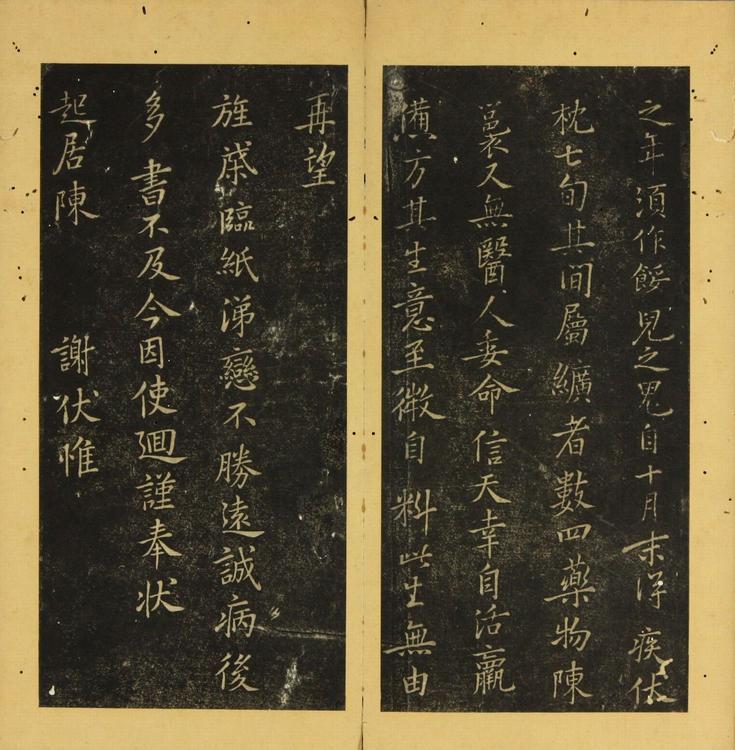 之年須作餒兒之鬼自十月末得疾伏
枕七旬其間屬纊者數四藥物陳
裛又無醫人委命信天幸自活羸
憊方其生意至微自料此生無由
再望
旌棨臨紙涕戀不勝遠誠病後
多書不及今因使廻謹奉狀
起居陳　謝伏惟